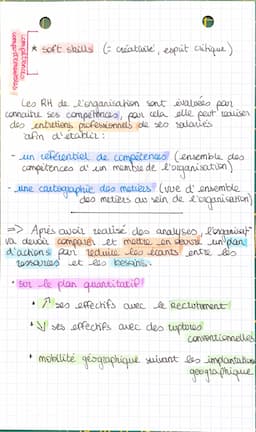 compétences
comportementales
* soft skills (= créativité, esprit critique)
Les RH de l'organisation sont évaluées par
connaitre ses compétences, pour cela elle peut réaliser
des entretiens professionnels de ses salariés
afin d'établir :
- un référentiel de compétences (ensemble des
compétences d'un membre de l'organisation)
- une cartographie des métiers (vue d'ensemble
des métiers au sein de l'organisation)
=> Après avoir réalisé des analyses, l'organisat°
va devoir comparer et mettre en œuvre un plan
d'actions pour réduire les écarts entre les
ressources et les besoins.
• sur le plan quantitatif
• ↗ ses effectifs avec le recrutement
• ↘ ses effectifs avec des ruptures
conventionnelles
• mobilité géographique suivant les implantations
géographique